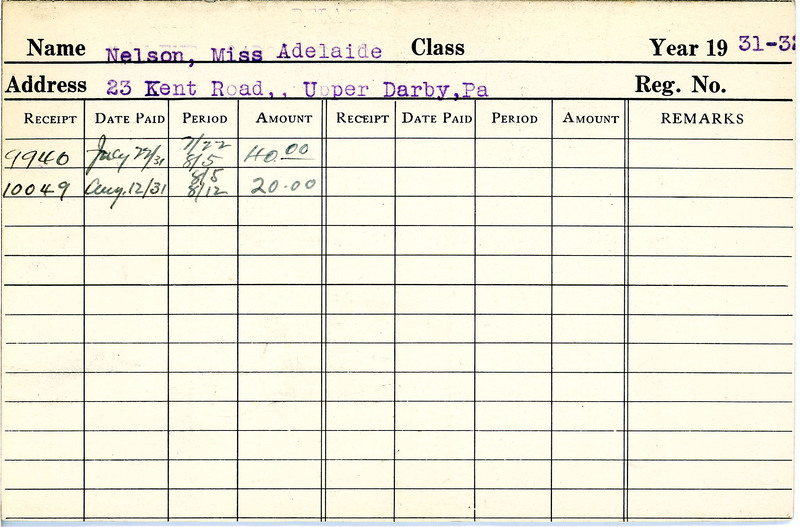 Name Nelson, Miss Adelaide Class Year 19 31-32
Address 23 Kent Road,, Upper Darby,Pa Reg. No.
RECEIPT DATE PAID PERIOD AMOUNT RECEIPT DATE PAID PERIOD AMOUNT REMARKS
9940 July 22/31 7/22 8/5 40.00
10049 Aug.12/31 8/5 8/12 20.00